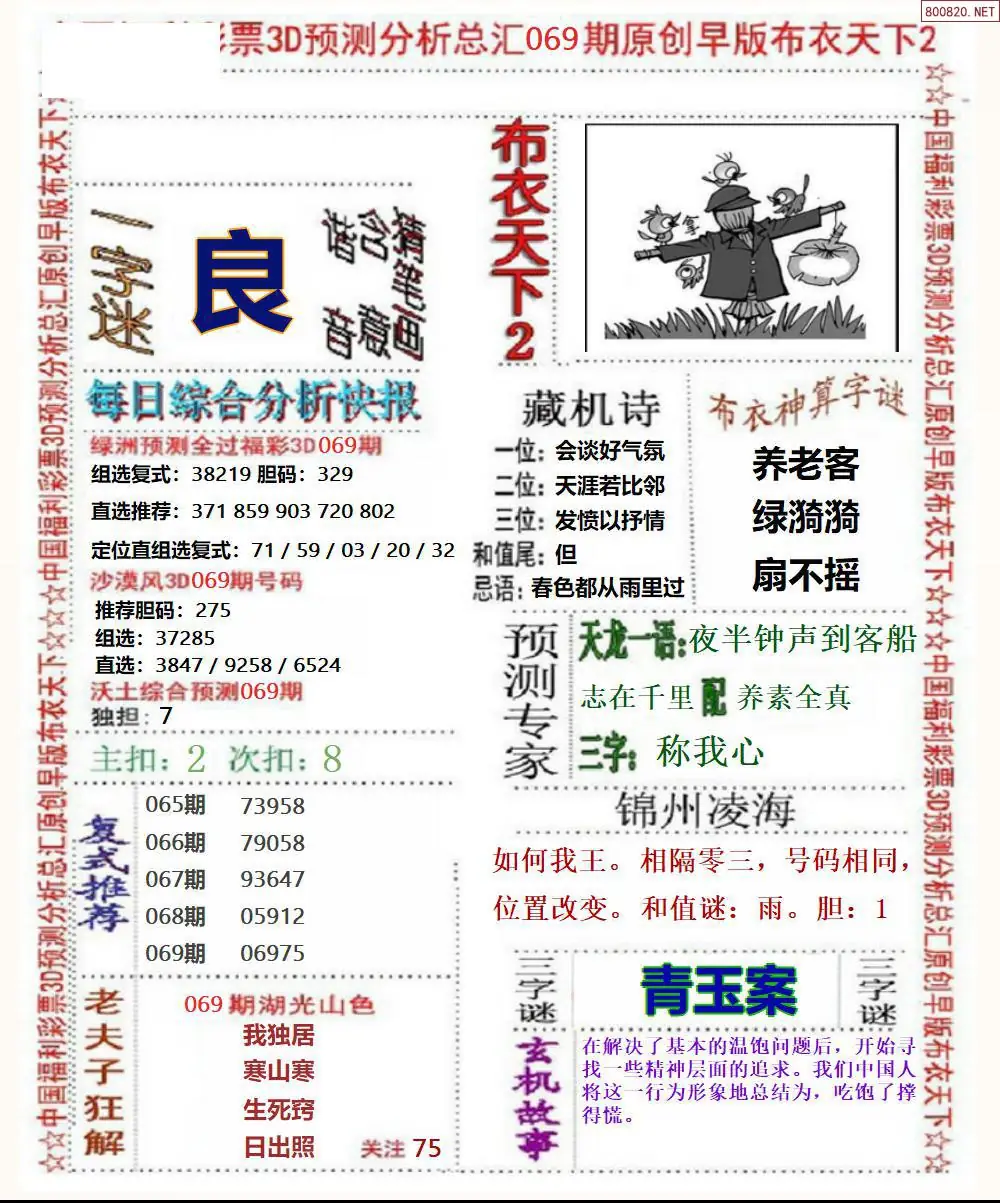 800820.NET
彩票3D预测分析总汇069期原创早版布衣天下2
☆☆中国福利彩票3D预测分析总汇原创早版布衣天下☆☆☆中国福利彩票3D预测分析总汇原创早版布衣天下☆
一字迷
良
猜笔画
含意
谐音
每日综合分析快报
绿洲预测全过福彩3D069期
组选复式：38219 胆码：329
直选推荐：371 859 903 720 802
定位直组选复式：71 / 59 / 03 / 20 / 32
沙漠风3D069期号码
推荐胆码：275
组选：37285
直选：3847 / 9258 / 6524
沃土综合预测069期
独担：7
主扣：2 次扣：8
复式推荐
065期 73958
066期 79058
067期 93647
068期 05912
069期 06975
老夫子狂解
069期湖光山色
我独居
寒山寒
生死窍
日出照 关注 75
布衣天下2
拿
藏机诗
一位：会谈好气氛
二位：天涯若比邻
三位：发愤以抒情
和值尾：但
忌语：春色都从雨里过
布衣神算字谜
养老客
绿漪漪
扇不摇
预测专家
天龙一语:夜半钟声到客船
志在千里 配 养素全真
三字：称我心
锦州凌海
如何我王。相隔零三，号码相同，
位置改变。和值谜：雨。胆：1
三字谜
青玉案
三字谜
玄机故事
在解决了基本的温饱问题后，开始寻
找一些精神层面的追求。我们中国人
将这一行为形象地总结为，吃饱了撑
得慌。
☆☆中国福利彩票3D预测分析总汇原创早版布衣天下☆☆☆中国福利彩票3D预测分析总汇原创早版布衣天下☆☆